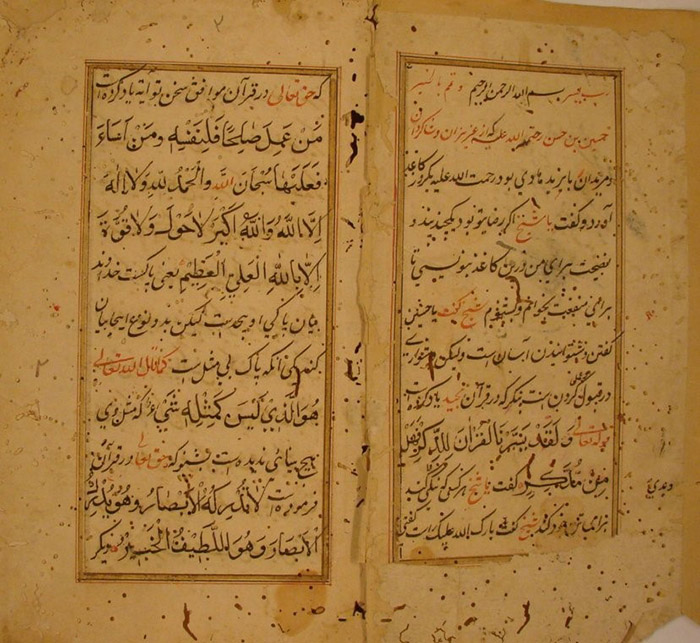 رب یسر بسم الله الرحمن الرحیم و تمم بالخیر
حسین بن حسن رحمة الله علیه که از عزیزان و شاکردان
و مریدان بایزید هادی بود رحمت الله علیه یکروز کاغذ
آورد و کفت یا شیخ اگر رضای تو بود کچند پند و
نصیحت برای من درین کاغذ بنویسی تا
برای منفعت بخوانم و بشنوم شیخ کفت یا حسین
کفتن و شنوانیدن آسان است ولیکن
در قبول کردن است بنکر که در قرآن مجید یاد کرده است
قوله تعالی وَلَقَدْ يَسَّرْنَا الْقُرْآنَ لِلذِّكْرِ فَهَلْ
مِنْ مُدَّكِرٍ کفت یا شیخ هر کس که
برای تن خود کند شیخ کفت بارک الله علیک است کفتی
که حق تعالی در قرآن موافق سخن تو آیة یاد کرده است
مَنْ عَمِلَ صَالِحًا فَلِنَفْسِهِ وَمَنْ أَسَاءَ
فَعَلَيْهَا سُبْحَانَ اللَّهِ وَالْحَمْدُ لِلَّهِ وَلَا إِلَهَ
إِلَّا اللَّهُ وَاللَّهُ أَكْبَرُ لَا حَوْلَ وَلَا قُوَّةَ
إِلَّا بِاللَّهِ الْعَلِيِّ الْعَظِيمِ یعنی پاکست خداوند
بیان پاکی او بیحدست لیکن بدو نوع اینجا بیان
کنم یکی آنکه پاک بی مثل است کما قال الله تعالی
هُوَ الَّذِي لَيْسَ كَمِثْلِهِ شَيْءٌ که مثل وی
هیچ بینای ندیده است بشنو که حق تعالی در قرآن
فرموده است لَا تُدْرِكُهُ الْأَبْصَارُ وَهُوَ يُدْرِكُ
الْأَبْصَارَ وَهُوَ اللَّطِيفُ الْخَبِيرُ دیکر